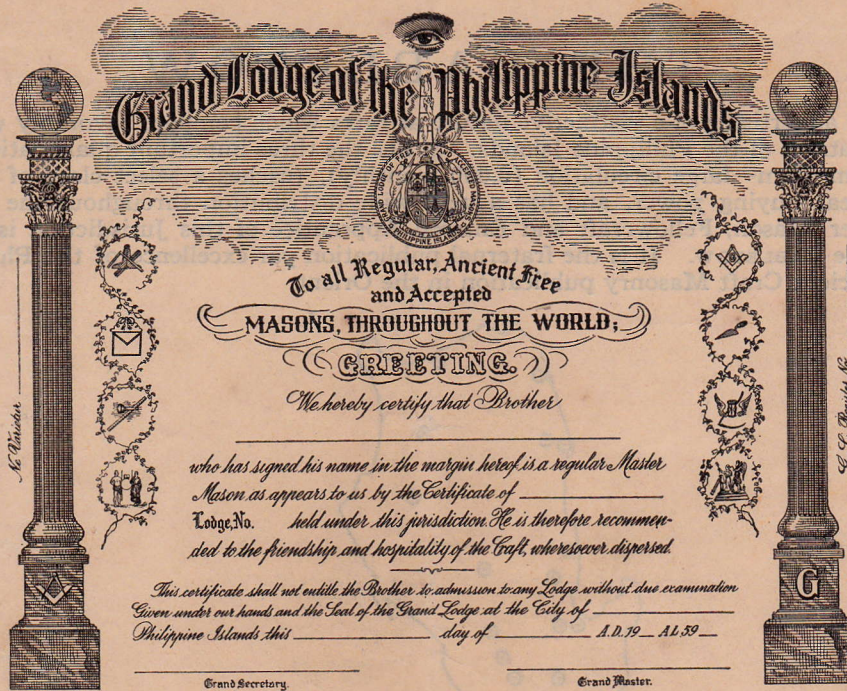 Grand Lodge of the Philippine Islands
GRAND LODGE OF FREE AND ACCEPTED MASONS
PHILIPPINE ISLANDS
To all Regular, Ancient Free
and Accepted
MASONS, THROUGHOUT THE WORLD;
GREETING.
We hereby certify that Brother
who has signed his name in the margin hereof is a regular Master
Mason as appears to us by the Certificate of
Lodge, No. held under this jurisdiction. He is therefore recommen-
ded to the friendship and hospitality of the Craft, wheresoever dispersed.
This certificate shall not entitle the Brother to admission to any Lodge without due examination
Given under our hands and the Seal of the Grand Lodge at the City of
Philippine Islands, this day of A.D. 19 A.L. 59
Grand Secretary.
Grand Master.
Ne Varietur
G